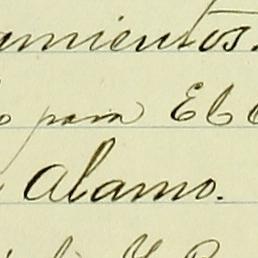 amientos.
o para El C
Alamo.